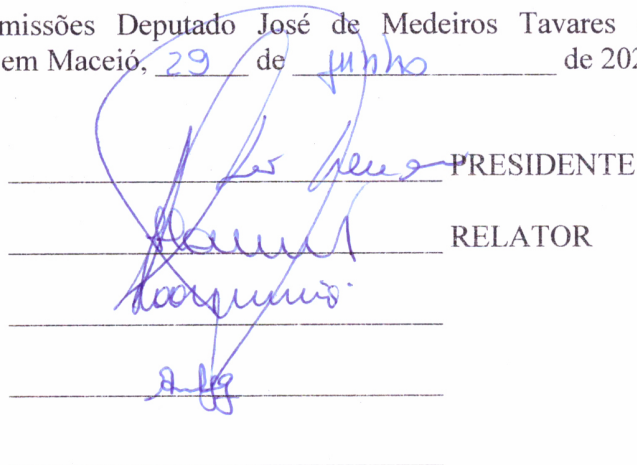 missões Deputado José de Medeiros Tavares
em Maceió, 29 de junho de 202
PRESIDENTE
RELATOR